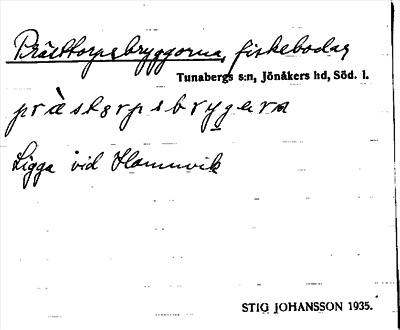 Prästtorpsbryggorna, fiskebodar
Tunabergs s:n, Jönåkers hd, Söd. l.
Ligga vid Hamnvik
STIG JOHANSSON 1935.